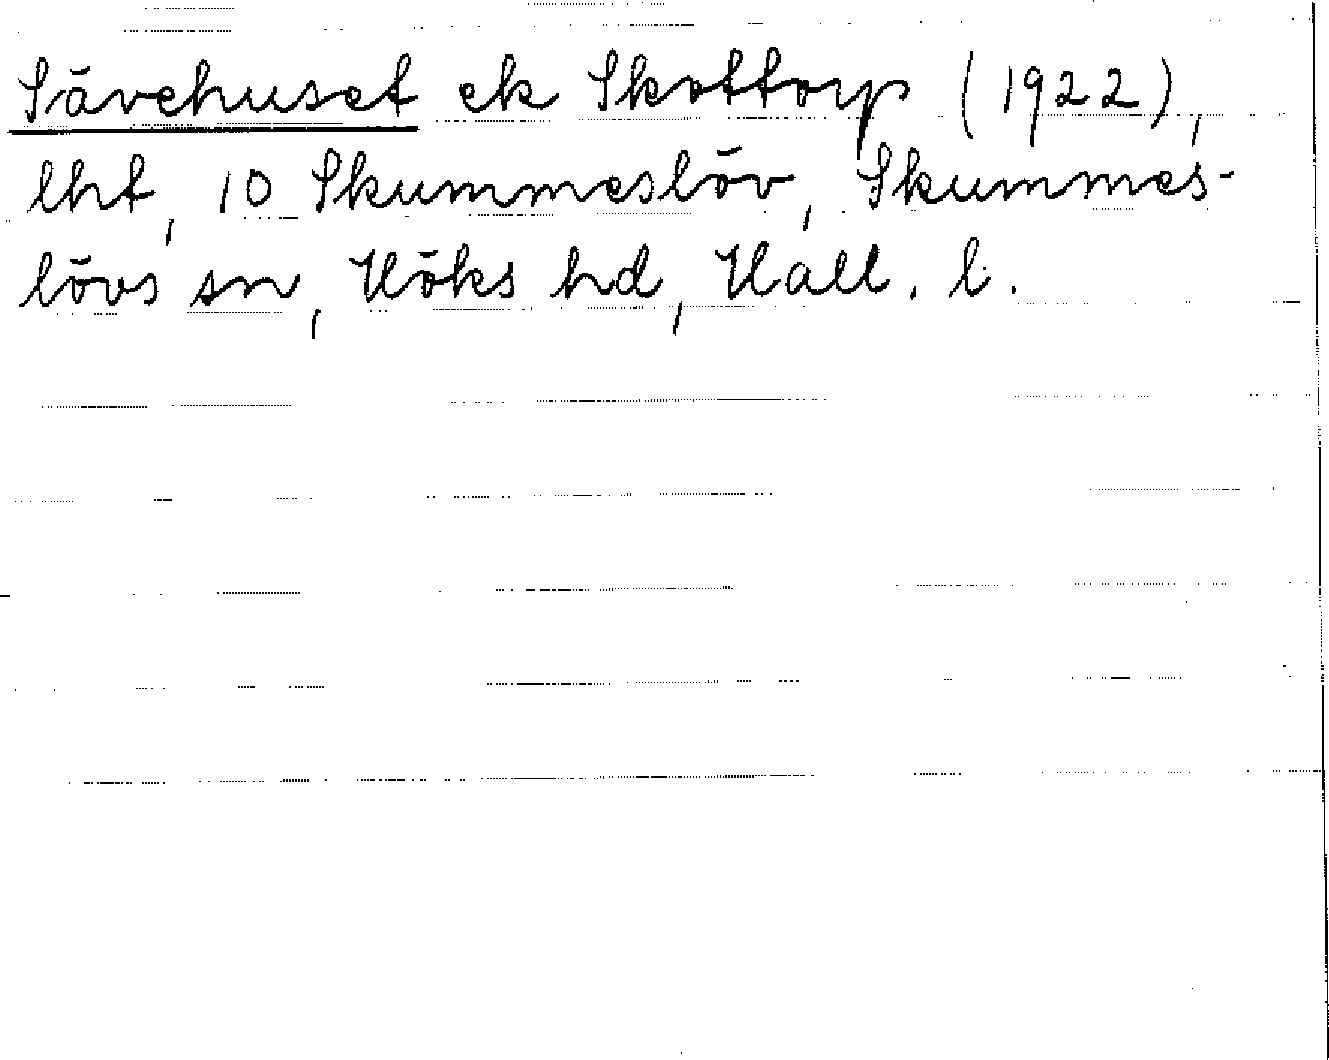 Sävehuset ek Skottorp (1922),
lht, 10 Skummeslöv, Skummes-
lövs sn, Höks hd, Hall. l.